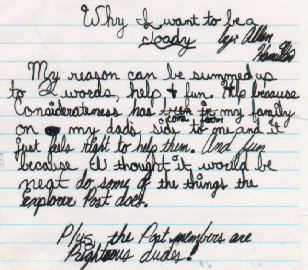 Why I want to be a
cloudy by: Allen
Hamilton
My reason can be summed up
to 2 words, help & fun. Help because
Considerateness has come from my family
on my dads side to me and it
just feels right to help them. And fun
because I thought it would be
neat do some of the things the
explorer Post does.
Plus, the Post members are
Righteous dudes!